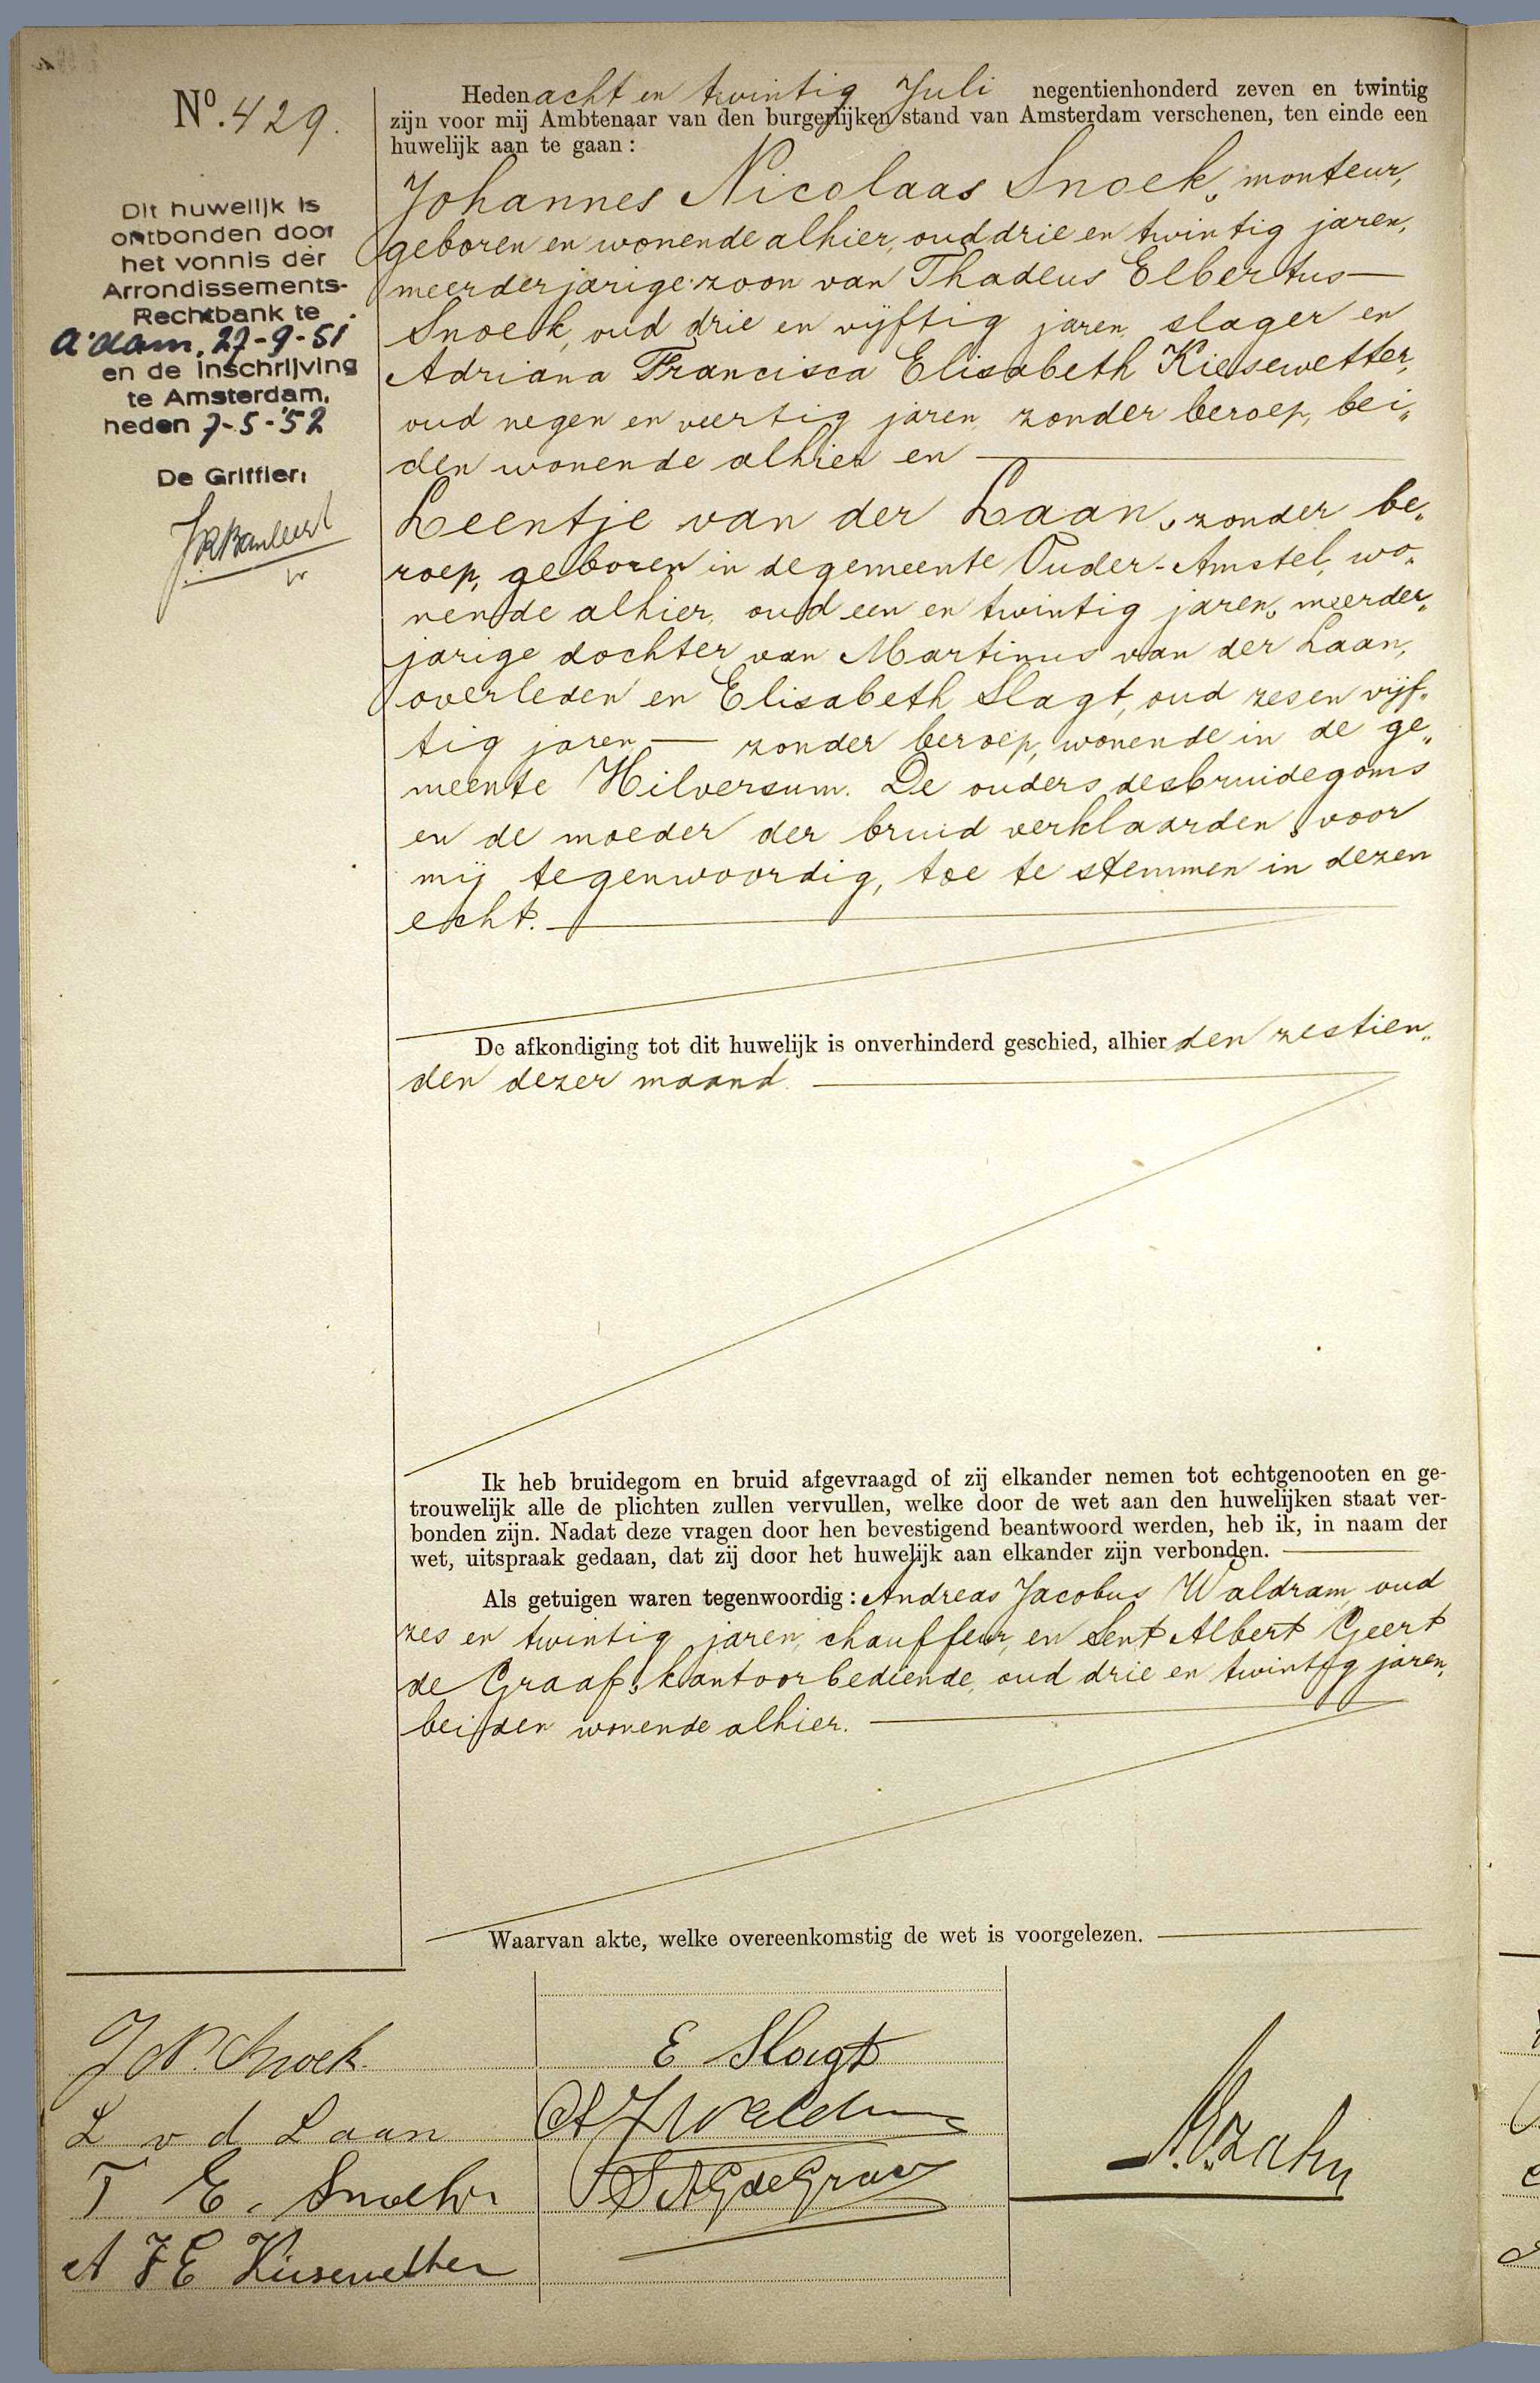 Nº. 429.
Dit huwelijk is
ontbonden door
het vonnis der
Arrondissements-
Rechtbank te
A'dam, 27-9-51
en de inschrijving
te Amsterdam,
heden 7-5-'52
De Griffier,
Heden acht en twintig Juli negentienhonderd zeven en twintig
zijn voor mij Ambtenaar van den burgerlijken stand van Amsterdam verschenen, ten einde een
huwelijk aan te gaan:
Johannes Nicolaas Snoek, monteur,
geboren en wonende alhier, oud drie en twintig jaren,
meerderjarige zoon van Thadeus Elbertus
Snoek, oud drie en vijftig jaren, slager en
Adriana Francisca Elisabeth Kiesewetter,
oud negen en veertig jaren, zonder beroep, bei„
den wonende alhier en
Leentje van der Laan, zonder be„
roep, geboren in de gemeente Ouder-Amstel, wo„
nende alhier, oud een en twintig jaren, meerder„
jarige dochter van Martinus van der Laan,
overleden en Elisabeth Slagt, oud zes en vijf„
tig jaren — zonder beroep, wonende in de ge„
meente Hilversum. De ouders des bruidegoms
en de moeder der bruid verklaarden, voor
mij tegenwoordig, toe te stemmen in dezen
echt.
De afkondiging tot dit huwelijk is onverhinderd geschied, alhier den zestien„
den dezer maand.
Ik heb bruidegom en bruid afgevraagd of zij elkander nemen tot echtgenooten en ge-
trouwelijk alle de plichten zullen vervullen, welke door de wet aan den huwelijken staat ver-
bonden zijn. Nadat deze vragen door hen bevestigend beantwoord werden, heb ik, in naam der
wet, uitspraak gedaan, dat zij door het huwelijk aan elkander zijn verbonden.
Als getuigen waren tegenwoordig: Andreas Jacobus Waldram, oud
zes en twintig jaren, chauffeur, en Sent Albert Geert
de Graaf, kantoorbediende, oud drie en twintig jaren,
beiden wonende alhier.
Waarvan akte, welke overeenkomstig de wet is voorgelezen.
J N. Snoek
L v d Laan
T E. Snoek
A F E Kiesewetter
E Slagt
A J Waldram
S A G de Graaf